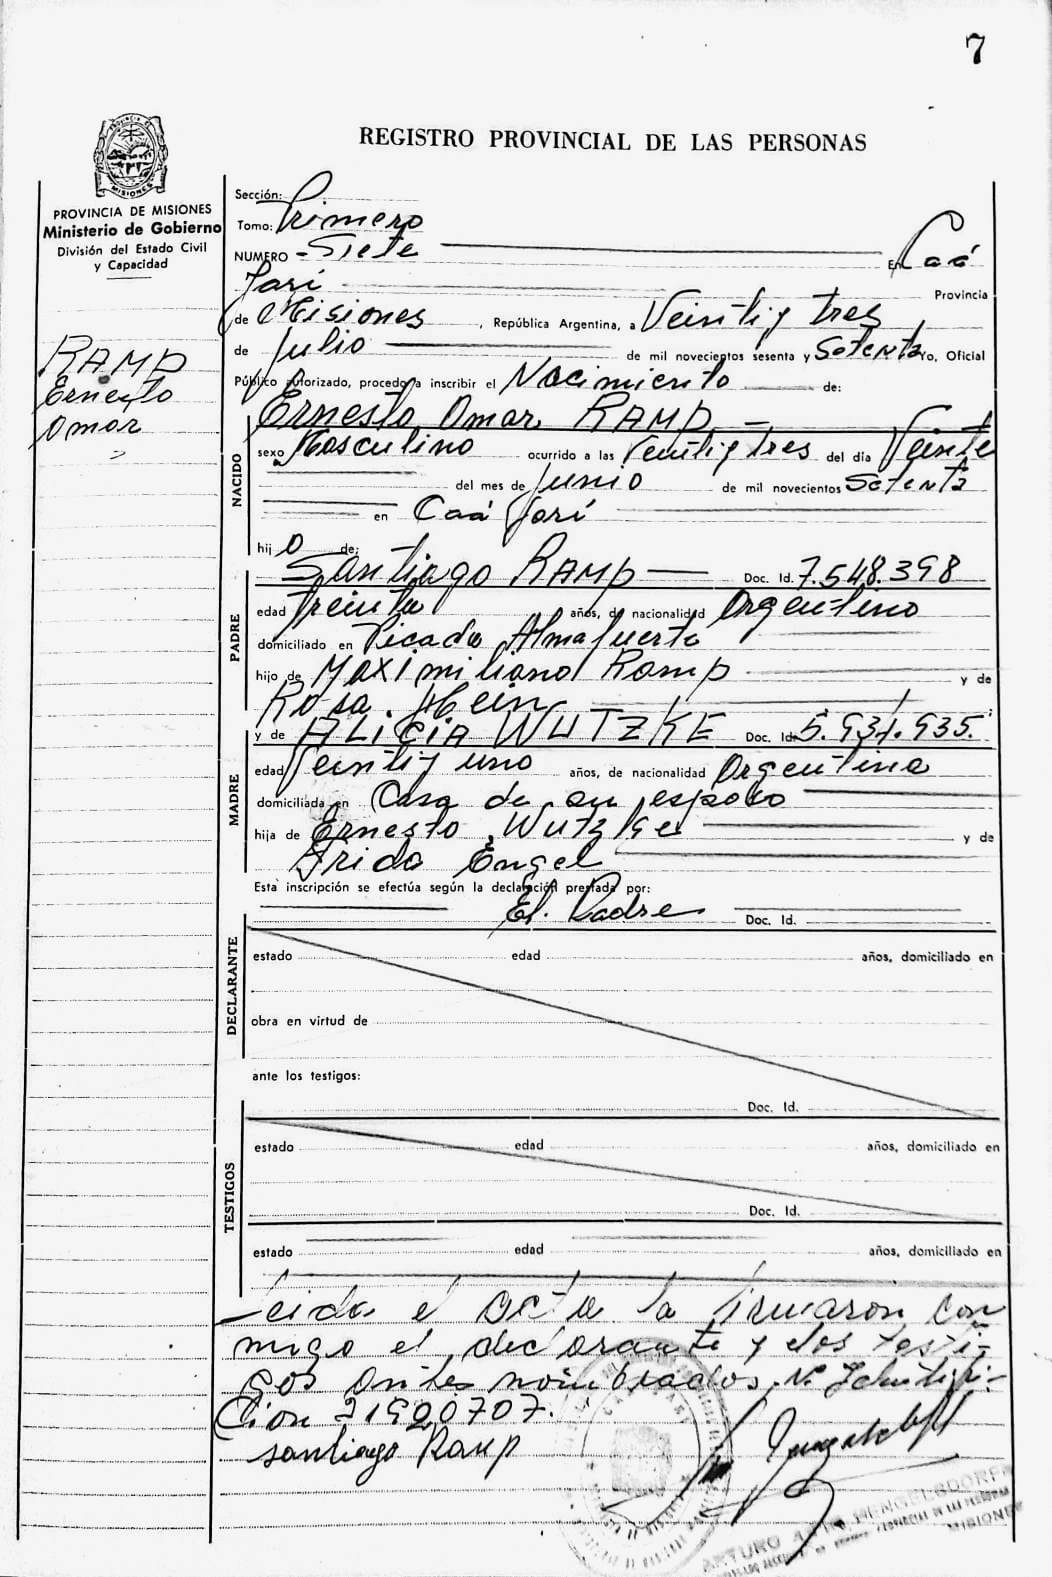 7
REGISTRO PROVINCIAL DE LAS PERSONAS
PROVINCIA DE MISIONES
PROVINCIA DE MISIONES
Ministerio de Gobierno
División del Estado Civil
y Capacidad
RAMP
Ernesto
Omar
Sección:
Tomo: Primero
NUMERO - Siete En Caá
Yarí Provincia
de Misiones, República Argentina, a Veintiy tres
de Julio de mil novecientos sesenta y Setenta Yo, Oficial
Público autorizado, procedo a inscribir el Nacimiento de:
Ernesto Omar RAMP
NACIDO
sexo Masculino ocurrido a las Veintiy tres del día Veinte
del mes de Junio de mil novecientos Setenta
en Caá Yarí
hij o de:
Santiago RAMP Doc. Id. 7.548.398
PADRE
edad Treinta años, de nacionalidad Argentino
domiciliado en Picada Almafuerte
hijo de Maximiliano Ramp y de
Rosa. Hein ;
y de ALICIA WUTZKE Doc. Id. 5.931.935.
MADRE
edad Veintiy uno años, de nacionalidad Argentina
domiciliada en Casa de su esposo
hija de Ernesto Wutzke y de
Frida Engel
Esta inscripción se efectúa según la declaración prestada por:
El. Padre Doc. Id.
DECLARANTE
estado edad años, domiciliado en
obra en virtud de
ante los testigos:
Doc. Id.
TESTIGOS
estado edad años, domiciliado en
Doc. Id.
estado edad años, domiciliado en
Leida el acta la firmaron con
migo el declarante y dos testi-
gos antes nombrados. Nº Identifi-
cion 21920707.
Santiago Ramp
ARTURO HENGELSDORFF
PROVINCIAL DE LAS PERSONAS
MISIONES